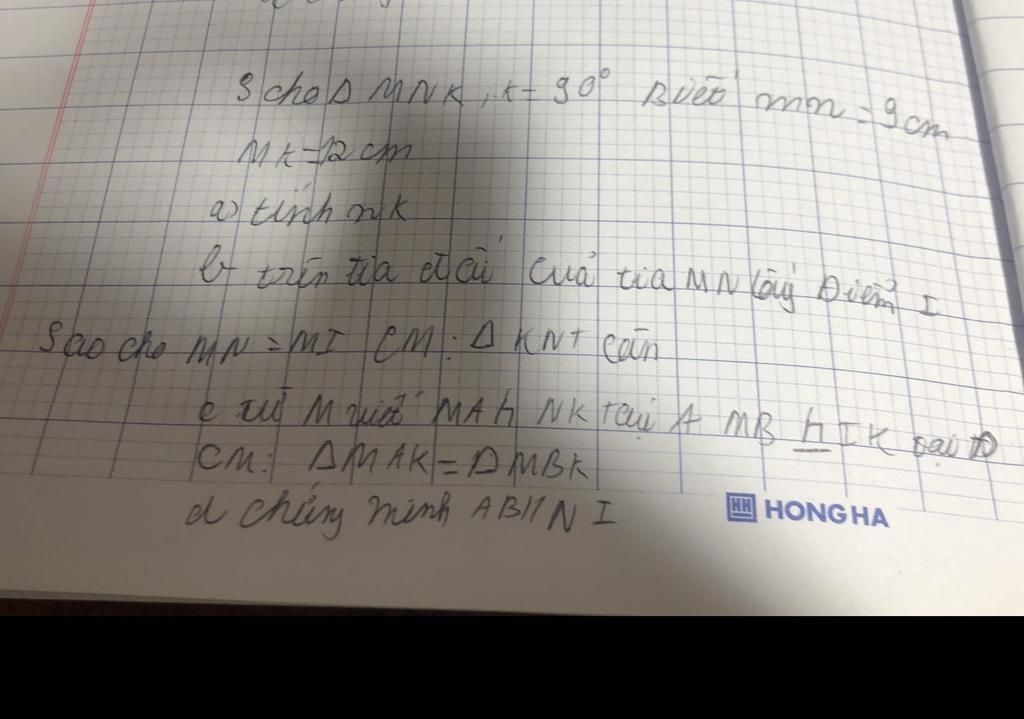 3 cho Δ MNK, K = 90° Biết mn = 9cm
MK = 12 cm
a) tính nk
b- trên tia đối của tia MN lấy Điểm I
Sao cho MN = MI CM: Δ KNI cân
c từ M MA h NK tại A MB h IK tại
CM: ΔMAK = ΔMBK
d chứng minh AB // N I
HONG HA